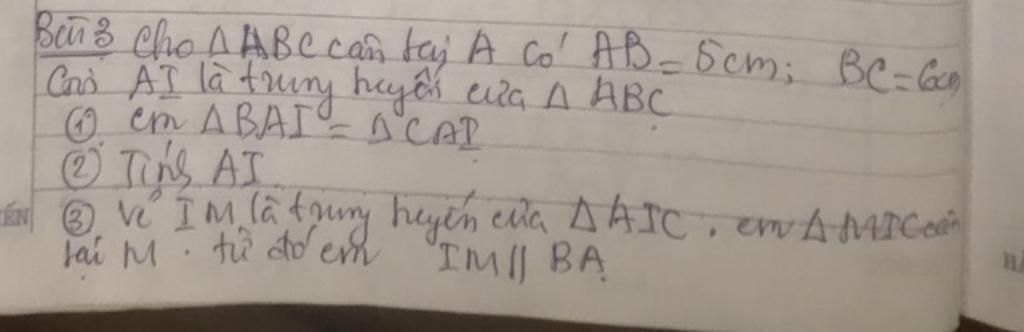 Bài 3 Cho ΔABC cân tại A có AB = 5cm; BC = 6cm
Gọi AI là trung tuyến của Δ ABC
① cm ΔBAI = ΔCAI
② Tính AI
③ Vẽ IM là trung tuyến của ΔAIC. cm ΔMIC cân
tại M. từ đó cm IM // BA